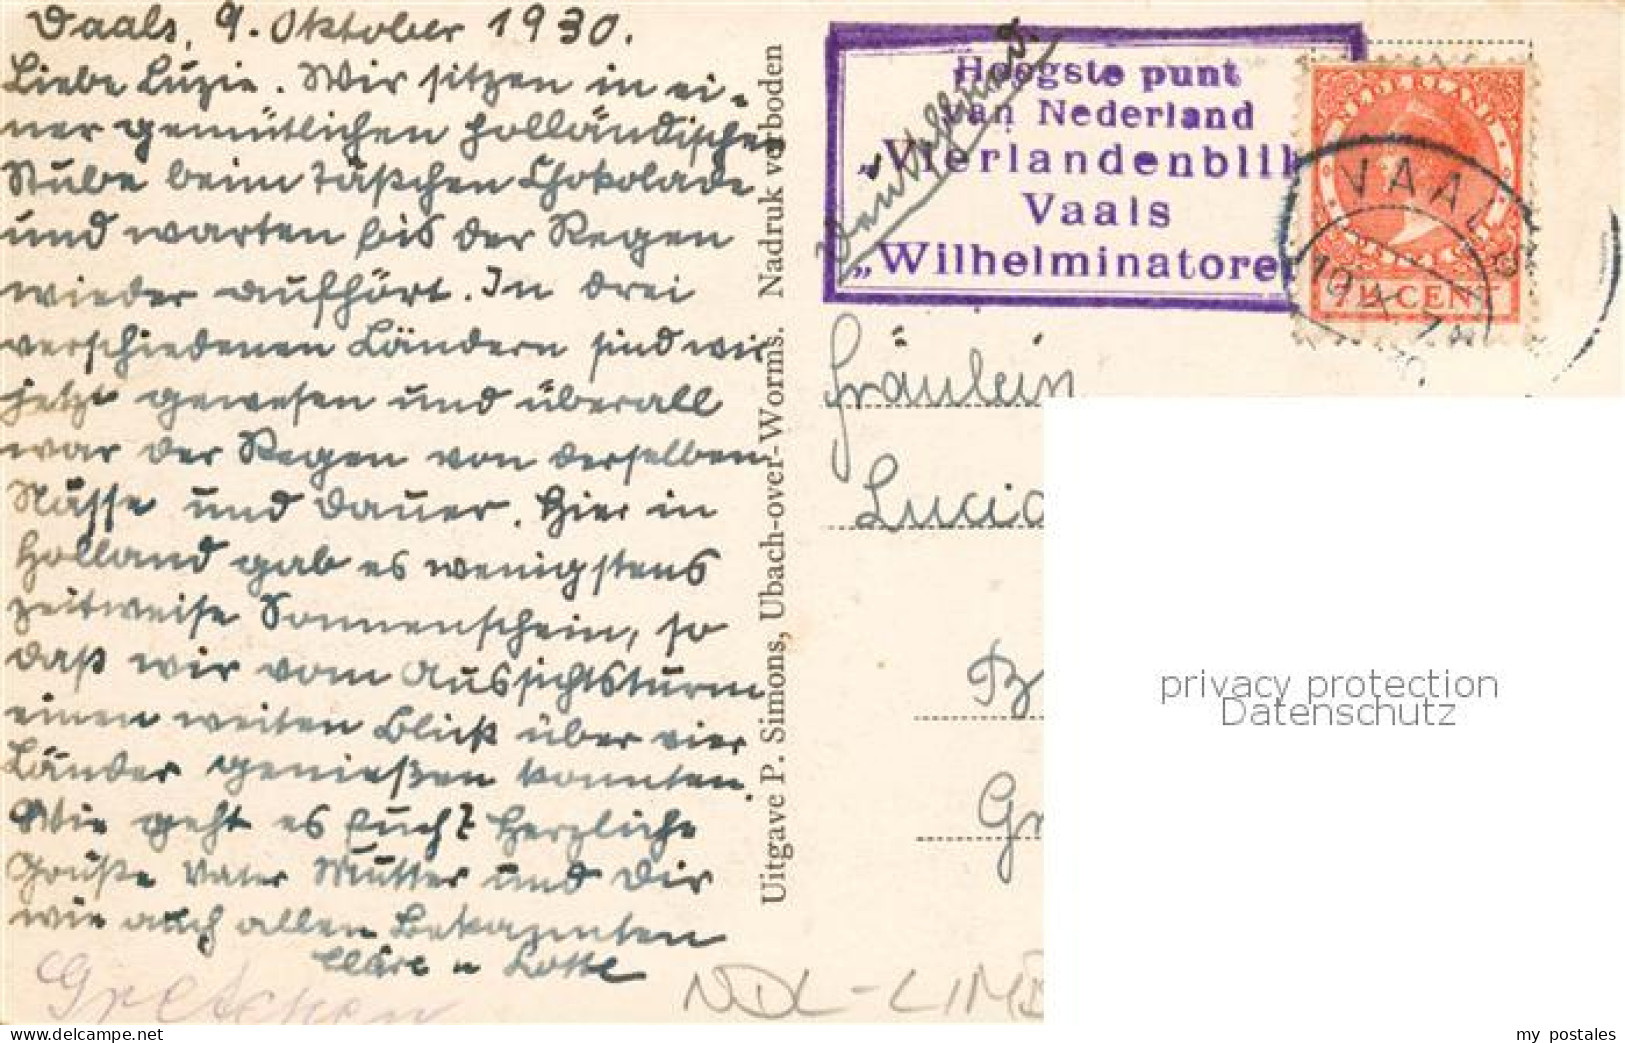 Vaals, 9. Oktober 1930.
Liebe Luzie. Wir sitzen in ei-
ner gemütlichen holländischen
Stube beim Täßchen Chokolade
und warten bis der Regen
wieder aufhört. In drei
verschiedenen Ländern sind wir
jetzt gewesen und überall
war der Regen von derselben
Nässe und Dauer. Hier in
Holland gab es wenigstens
zeitweise Sonnenschein, so
daß wir vom Aussichtsturm
einen weiten Blick über vier
Länder genießen konnten.
Wie geht es Euch? Herzliche
Grüße Vater Mutter und Dir
wie auch allen Bekannten
Cläre u Lotte
Gretchen
Uitgave P. Simons, Ubach-over-Worms. Nadruk verboden
Hoogste punt
van Nederland
„Vierlandenblik
Vaals
„Wilhelminatoren
Deutschland
NEDERLAND
7½ CENT
VAALS
Fräulein
Lucia
B
Gr
NDL-LIMB
privacy protection
Datenschutz
www.ansichtskartenversand.com
my postales